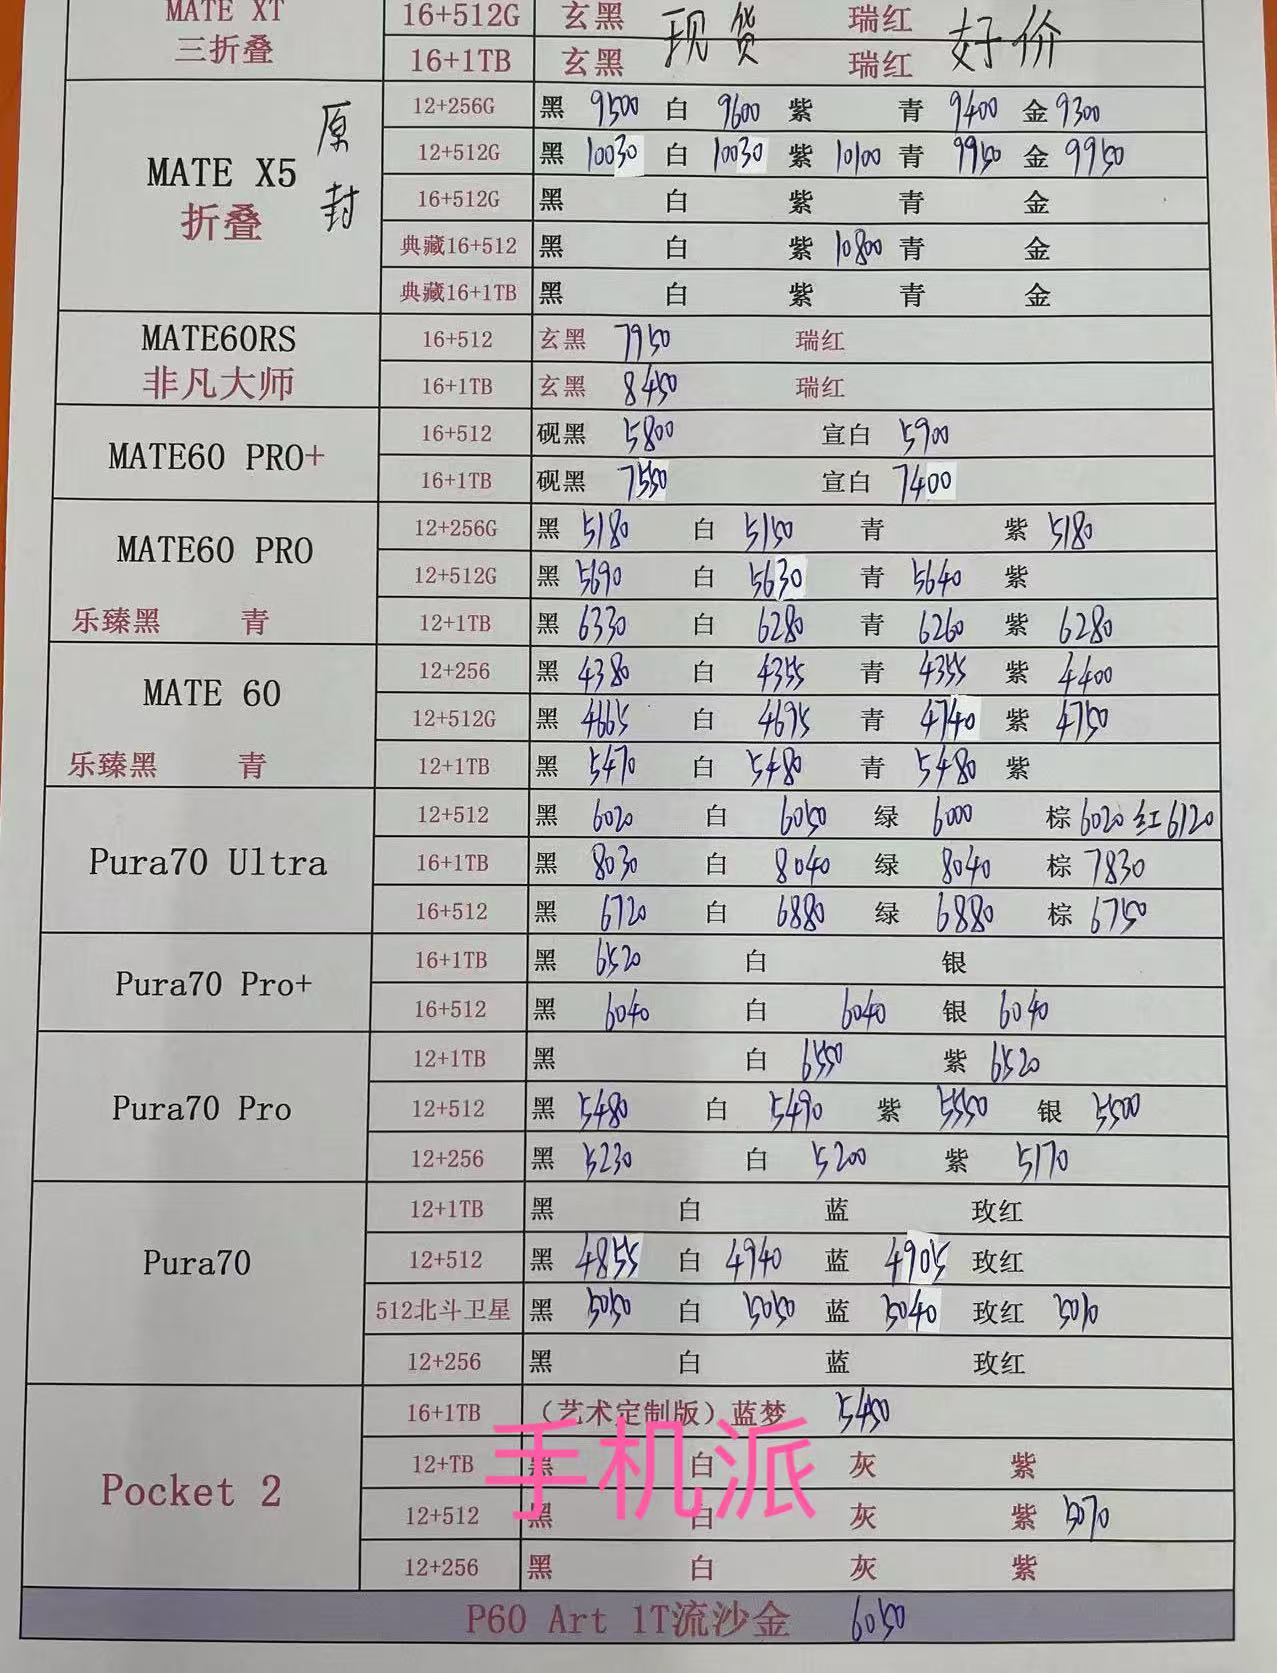 MATE XT 16+512G 玄黑 现货 瑞红 好价
三折叠 16+1TB 玄黑 瑞红
MATE X5 折叠 原封
12+256G 黑 9500 白 9600 紫 青 9400 金 9300
12+512G 黑 10030 白 10030 紫 10100 青 9950 金 9950
16+512G 黑 白 紫 青 金
典藏16+512 黑 白 紫 10800 青 金
典藏16+1TB 黑 白 紫 青 金
MATE60RS 16+512 玄黑 7950 瑞红
非凡大师 16+1TB 玄黑 8450 瑞红
MATE60 PRO+
16+512 砚黑 5800 宣白 5900
16+1TB 砚黑 7550 宣白 7400
MATE60 PRO
12+256G 黑 5180 白 5150 青 紫 5180
12+512G 黑 5690 白 5630 青 5640 紫
乐臻黑 青 12+1TB 黑 6330 白 6280 青 6260 紫 6280
MATE 60
12+256 黑 4380 白 4355 青 4355 紫 4400
12+512G 黑 4665 白 4695 青 4740 紫 4750
乐臻黑 青 12+1TB 黑 5470 白 5480 青 5480 紫
Pura70 Ultra
12+512 黑 6020 白 6050 绿 6000 棕 6020 红 6120
16+1TB 黑 8030 白 8040 绿 8040 棕 7830
16+512 黑 6720 白 6880 绿 6880 棕 6750
Pura70 Pro+
16+1TB 黑 6520 白 银
16+512 黑 6040 白 6040 银 6040
Pura70 Pro
12+1TB 黑 白 6550 紫 6520
12+512 黑 5480 白 5490 紫 5550 银 5500
12+256 黑 5230 白 5200 紫 5170
Pura70
12+1TB 黑 白 蓝 玫红
12+512 黑 4855 白 4940 蓝 4905 玫红
512北斗卫星 黑 5050 白 5050 蓝 5040 玫红 5010
12+256 黑 白 蓝 玫红
Pocket 2
16+1TB （艺术定制版）蓝梦 5450
12+TB 黑 白 灰 紫
12+512 黑 白 灰 紫 5070
12+256 黑 白 灰 紫
手机派
P60 Art 1T流沙金 6050